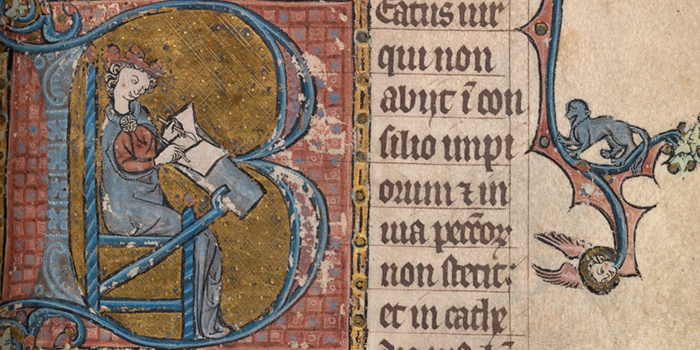 Eatus uir
qui non
abijt ī con
silio impi
orum ⁊ in
uia peccōꝝ
non stetit:
et in cath